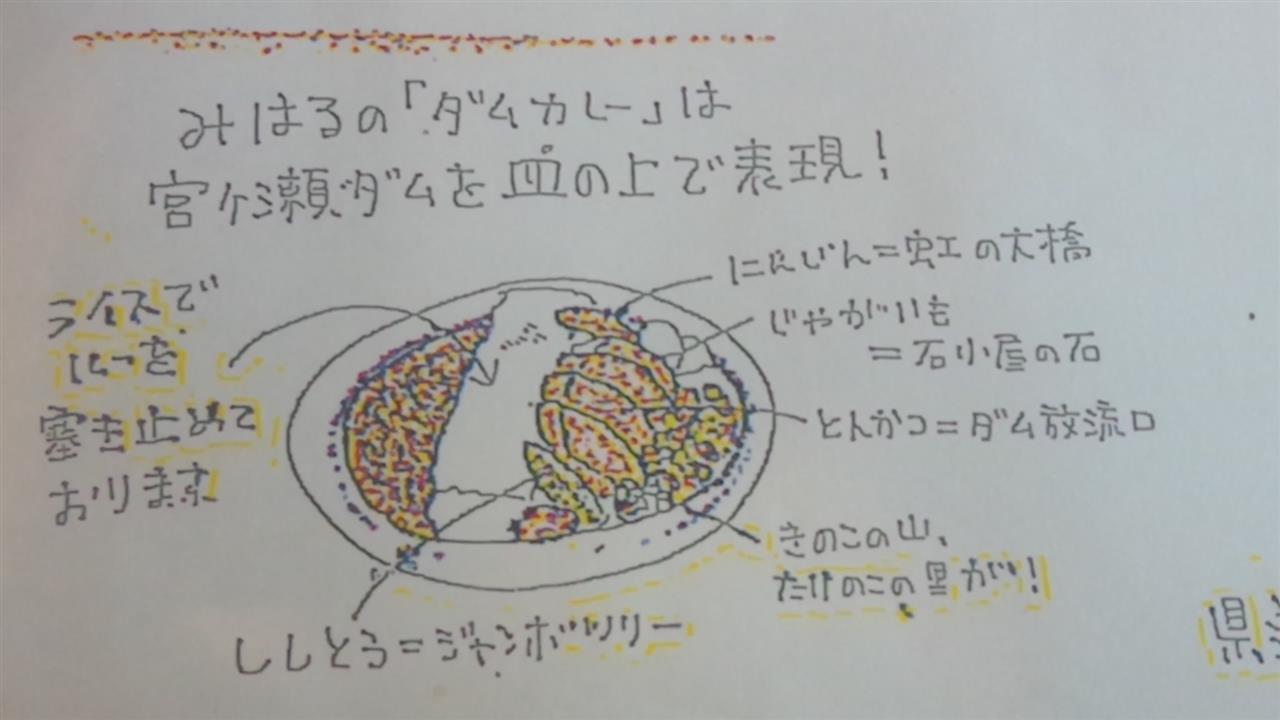 みはるの「ダムカレー」は
宮ヶ瀬ダムを皿の上で表現!
にんじん=虹の大橋
じゃがいも
=石小屋の石
とんかつ=ダム放流口
きのこの山、
たけのこの里が!
ライスで
ルーを
塞き止めて
おります
ししとう=ジャンボツリー
県